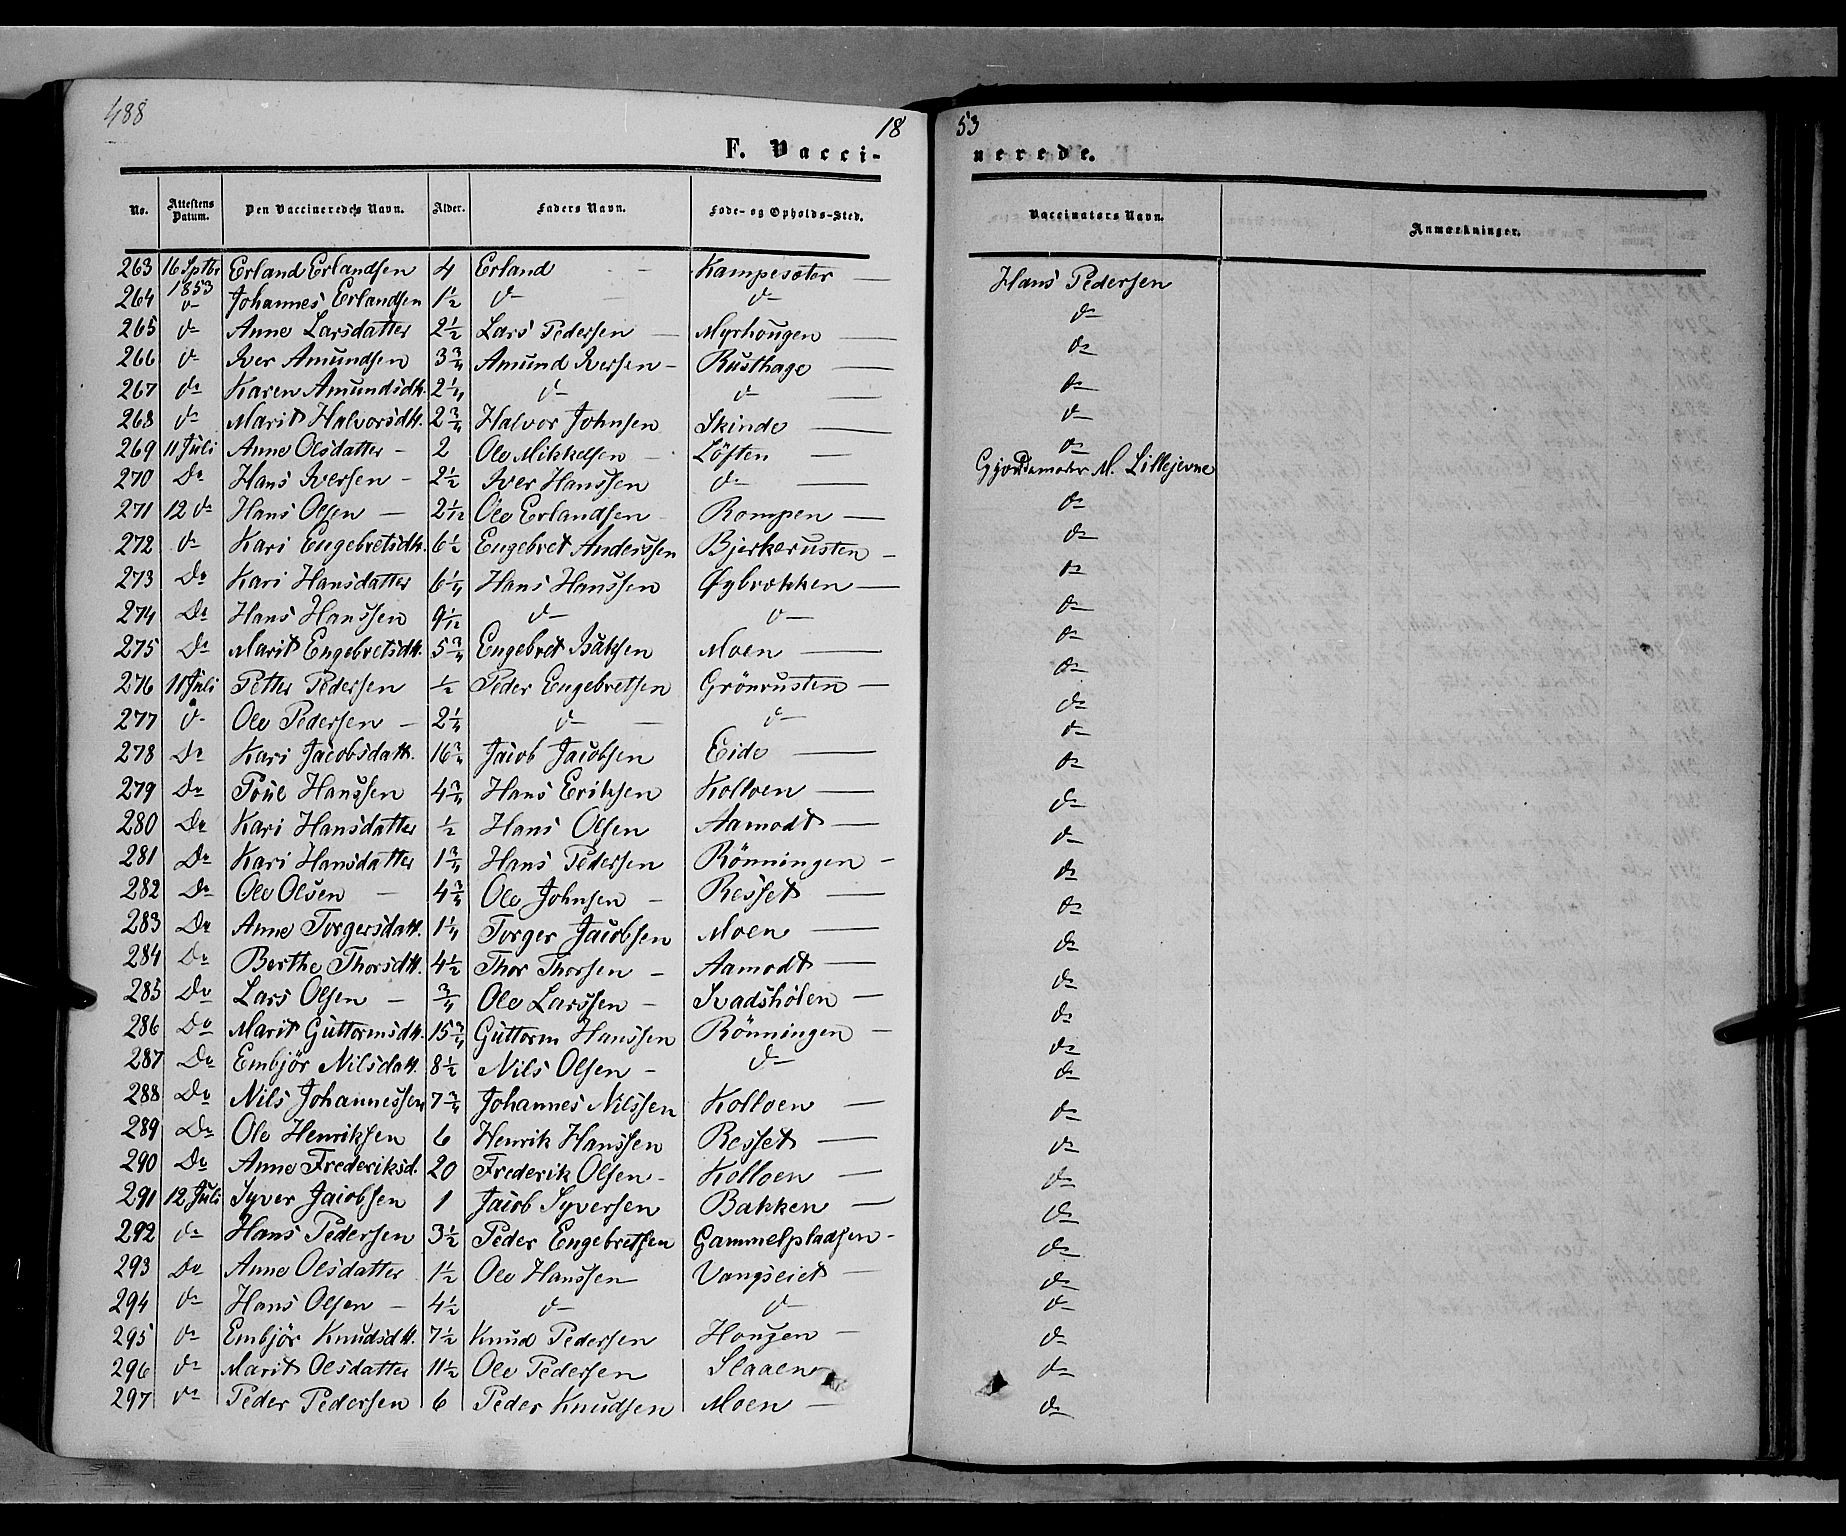 488
18 53
F. Vacci- nerede.
No. Attestens Datum. Den Vaccineredes Navn. Alder. Faders Navn. Føde- og Opholds-Sted. Vaccinators Navn. Anmærkninger.
263 16 Sptbr 1853 Erland Erlandsen 4 Erland — Kampesæter — Hans Pedersen
264 do Johannes Erlandsen 1½ do do do
265 do Anne Larsdatter 2½ Lars Pedersen — Myrhougen — do
266 do Iver Amundsen 3¾ Amund Iversen - Rusthage — do
267 do Karen Amundsdtt. 2¼ do do — do
268 do Marit Halvorsdtt. 2¾ Halvor Johnsen Skinde — do
269 11 Juli Anne Olsdatter - 2 Ole Mikkelsen - Løften — Gjordemoder M. Lillejevne
270 Do Hans Iversen - 2½ Iver Hanssen do — do
271 12 do Hans Olsen — 2 1/12 Ole Erlandsen Rompen — do
272 do Kari Engebretsdtt. 6½ Engebret Anderssen Bjerkerusten - do
273 Do Kari Hansdatter 6¼ Hans Hanssen Øybrækken — do
274 Do Hans Hanssen 9/12 do do do
275 Do Marit Engebretsdtt. 5¾ Engebret Isaksen Moen — do
276 11 Juli Petter Pedersen ½ Peder Engebretsen Grönrusten — do
277 do Ole Pedersen — 2¼ do — do do
278 Do Kari Jacobsdatt. 16¾ Jacob Jacobsen Eide — do
279 Do Poul Hanssen 4¾ Hans Eriksen Kolloen — do
280 Do Kari Hansdatter ½ Hans Olsen Aamodt — do
281 Do Kari Hansdatter 1¾ Hans Pedersen Rönningen - do
282 Do Ole Olsen - 4¾ Ole Johnsen - Resset — do
283 Do Anne Torgersdatt. 1¼ Torger Jacobsen Moen — do
284 Do Berthe Thorsdtt. 4½ Thor Thorsen - Aamodt — do
285 Do Lars Olsen - ¾ Ole Larssen - Svadshölen — do
286 Do Marit Guttormsdtt. 15¾ Guttorm Hanssen Rönningen - do
287 Do Embjör Nilsdatt. 8½ Nils Olsen - do do
288 Do Nils Johannessen 7¾ Johannes Nilssen Kolloen — do
289 Do Ole Henriksen 6 Henrik Hanssen Resset — do
290 Do Anne Frederiksd. 20 Frederik Olsen - Kolloen — do
291 12 Juli Syver Jacobsen 1 Jacob Syversen Bakken — do
292 do Hans Pedersen 3½ Peder Engebretsen Gammelpladsen - do
293 Do Anne Olsdatter 1½ Ole Hanssen Vangseiet — do
294 do Hans Olsen - 4½ do do do
295 do Embjör Knudsdtt. 7½ Knud Pedersen Hougen - do
296 do Marit Olsdatter 11½ Ole Pedersen Slaaen - do
297 do Peder Pedersen 6 Peder Knudsen Moen - do